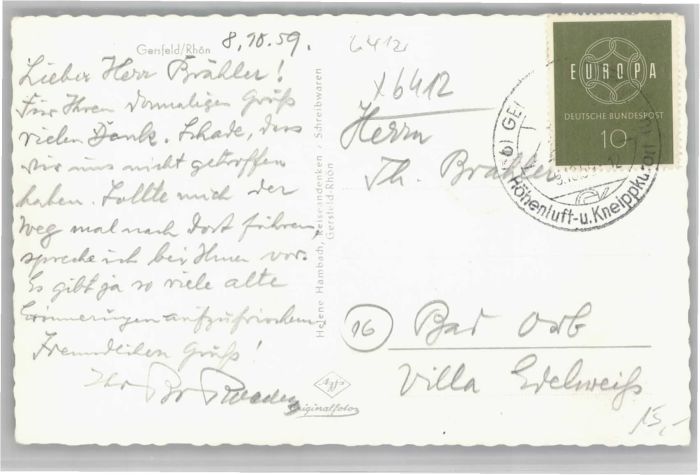 Gersfeld/Rhön
8.10.59.
Lieber Herr Brähler!
Für Ihren damaligen Gruß
vielen Dank. Schade, dass
wir uns nicht getroffen
haben. Sollte mich der
Weg mal nach dort führen,
spreche ich bei Ihnen vor.
Es gibt ja so viele alte
Erinnerungen aufzufrischen.
Freundlichen Gruß!
Ihr
Helene Hambach, Reiseandenken / Schreibwaren
Gersfeld-Rhön
Agfa
Originalfoto
6412
x6412
Herrn
Th. Brähler
16 Bad Orb
Villa Edelweiß
15,-
EUROPA
DEUTSCHE BUNDESPOST
10
Höhenluft-u. Kneippkurort